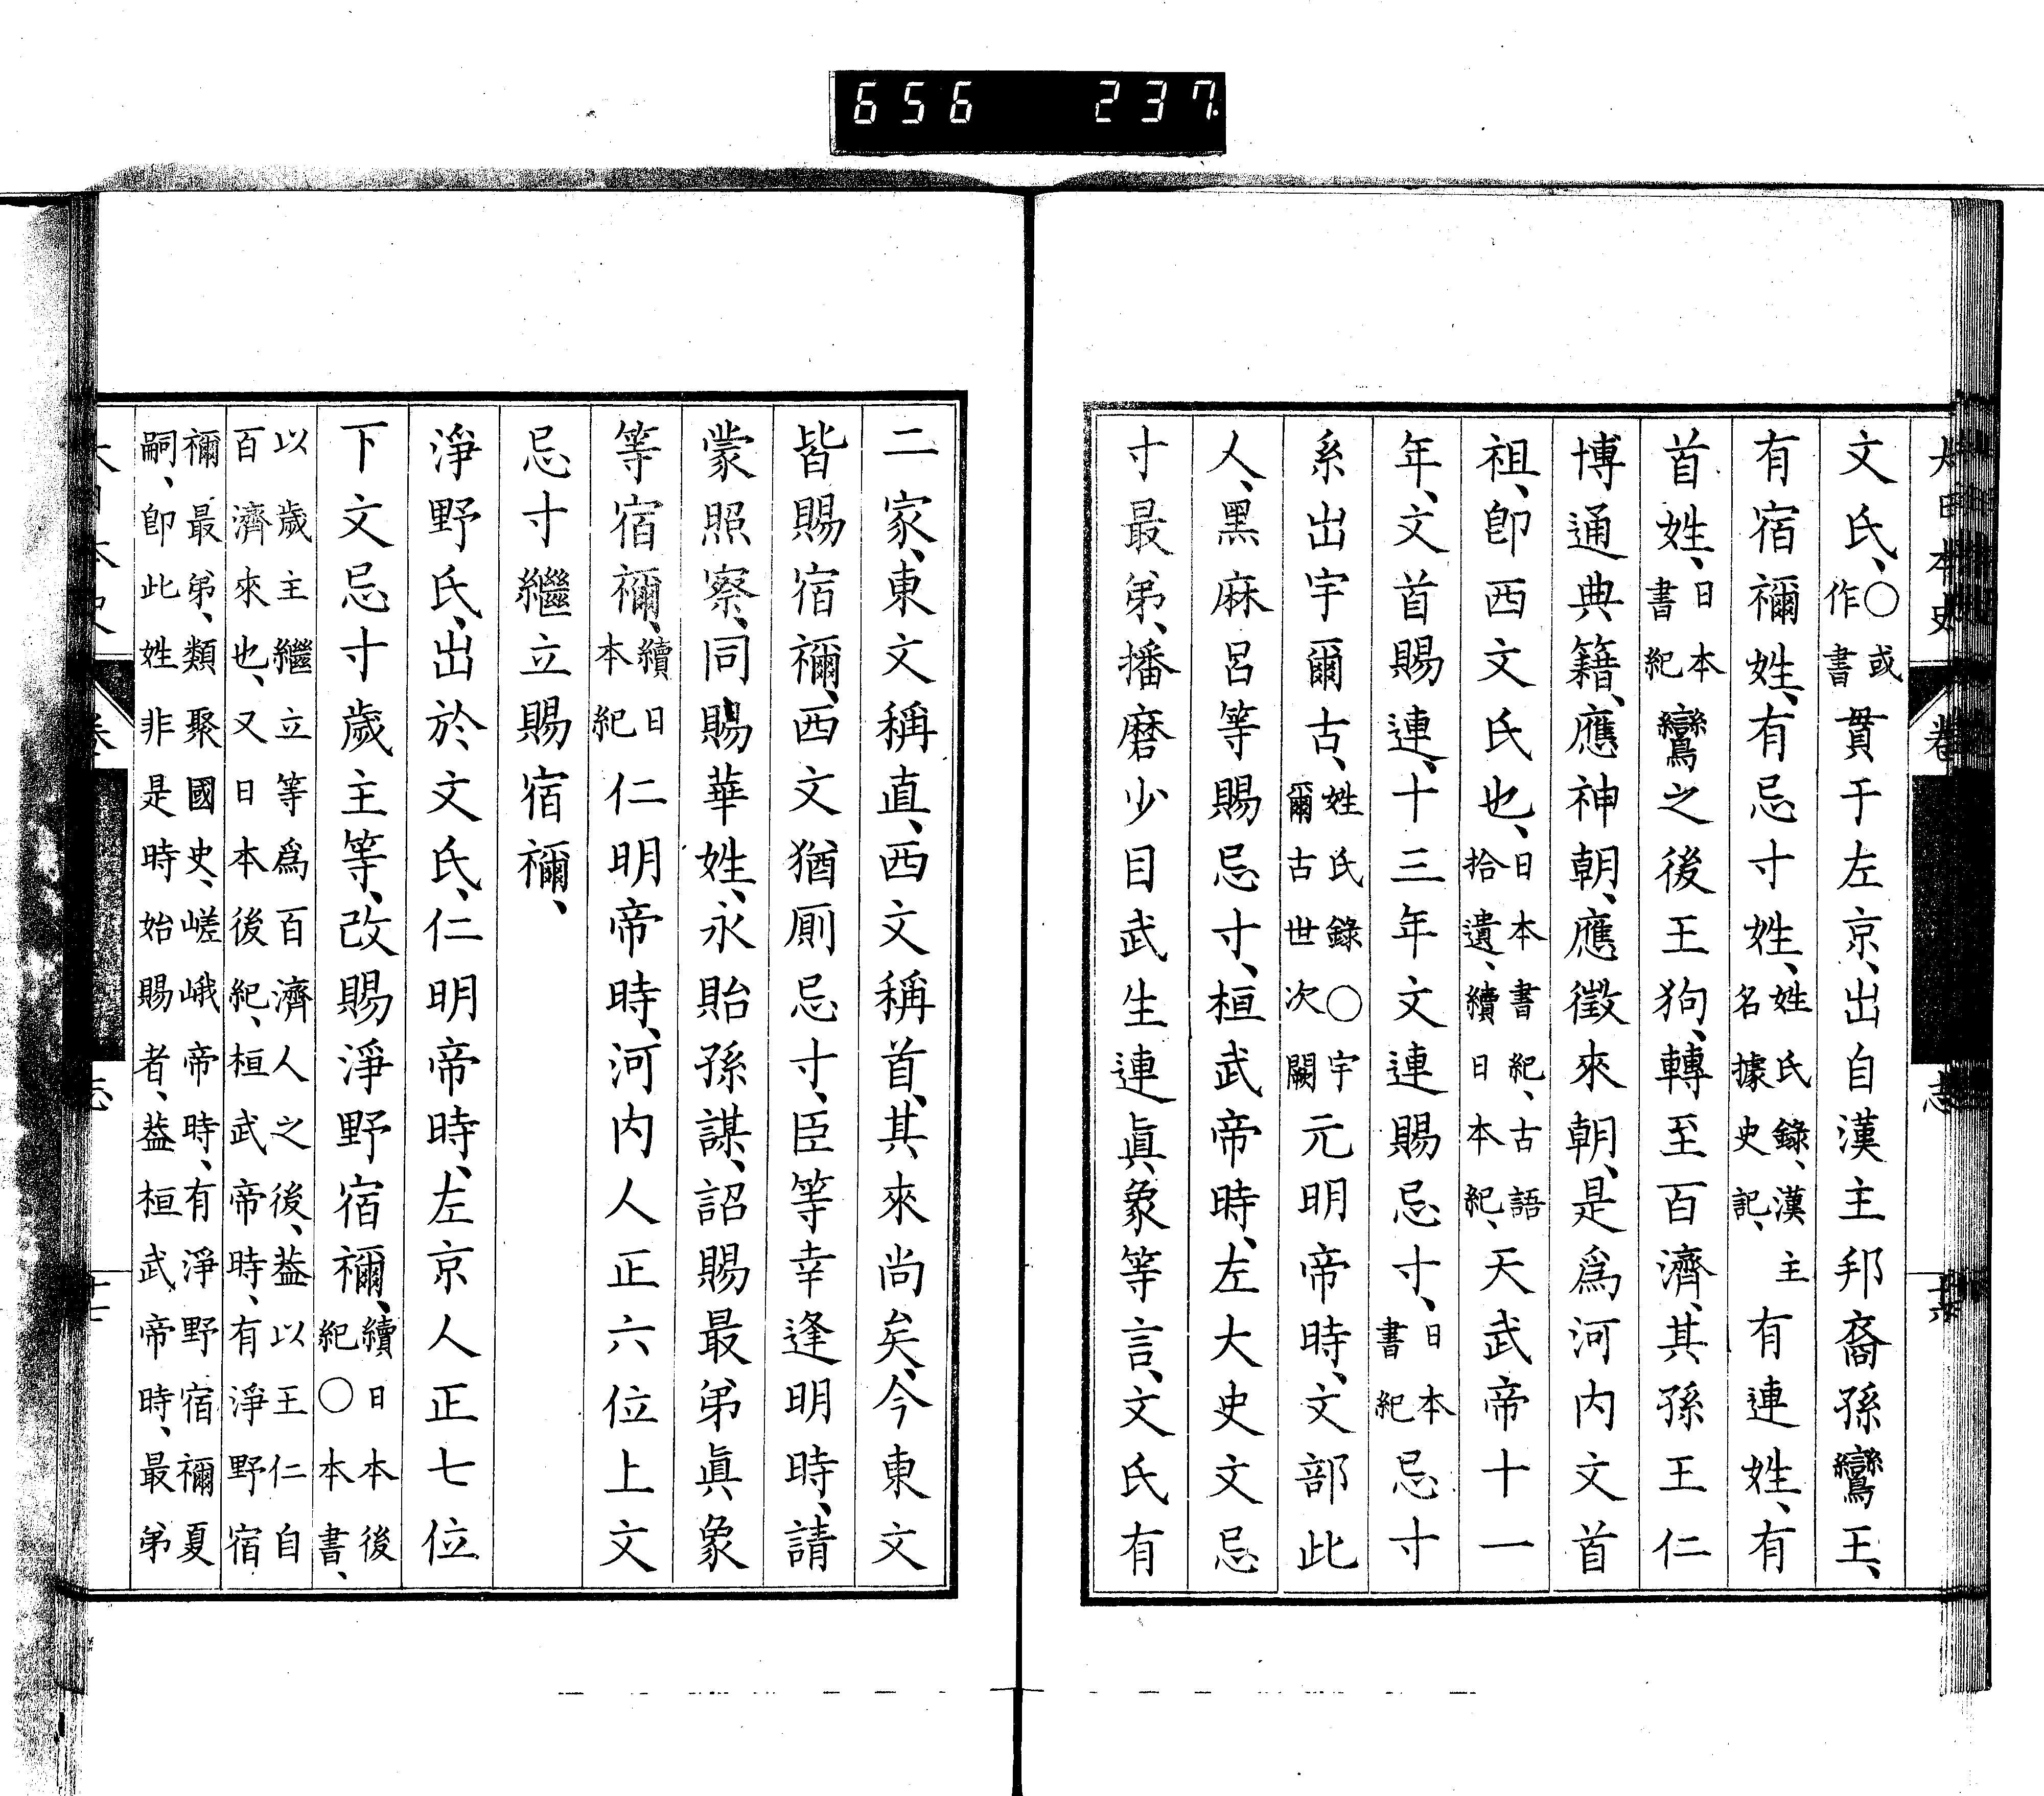 656 237
大日本史 卷 志 十六
文氏、○或作書貫于左京、出自漢主邦裔孫鸞王、
有宿禰姓、有忌寸姓、姓氏錄、漢主名據史記、有連姓、有
首姓、日本書紀鸞之後王狗、轉至百濟、其孫王仁
博通典籍、應神朝、應徵來朝、是爲河内文首
祖、卽西文氏也、日本書紀、古語拾遺、續日本紀、天武帝十一
年、文首賜連、十三年文連賜忌寸、日本書紀忌寸
系出宇爾古、姓氏錄○宇爾古世次闕元明帝時、文部此
人、黑麻呂等賜忌寸、桓武帝時、左大史文忌
寸最弟、播磨少目武生連眞象等言、文氏有
二家、東文稱直、西文稱首、其來尚矣、今東文
皆賜宿禰、西文猶厠忌寸、臣等幸逢明時、請
蒙照察、同賜華姓、永貽孫謀、詔賜最弟眞象
等宿禰、續日本紀仁明帝時、河内人正六位上文
忌寸繼立賜宿禰、
淨野氏、出於文氏、仁明帝時、左京人正七位
下文忌寸歲主等、改賜淨野宿禰、續日本後紀○本書、
以歲主繼立等爲百濟人之後、蓋以王仁自
百濟來也、又日本後紀、桓武帝時、有淨野宿
禰最弟、類聚國史、嵯峨帝時、有淨野宿禰夏
嗣、卽此姓非是時始賜者、蓋桓武帝時、最弟